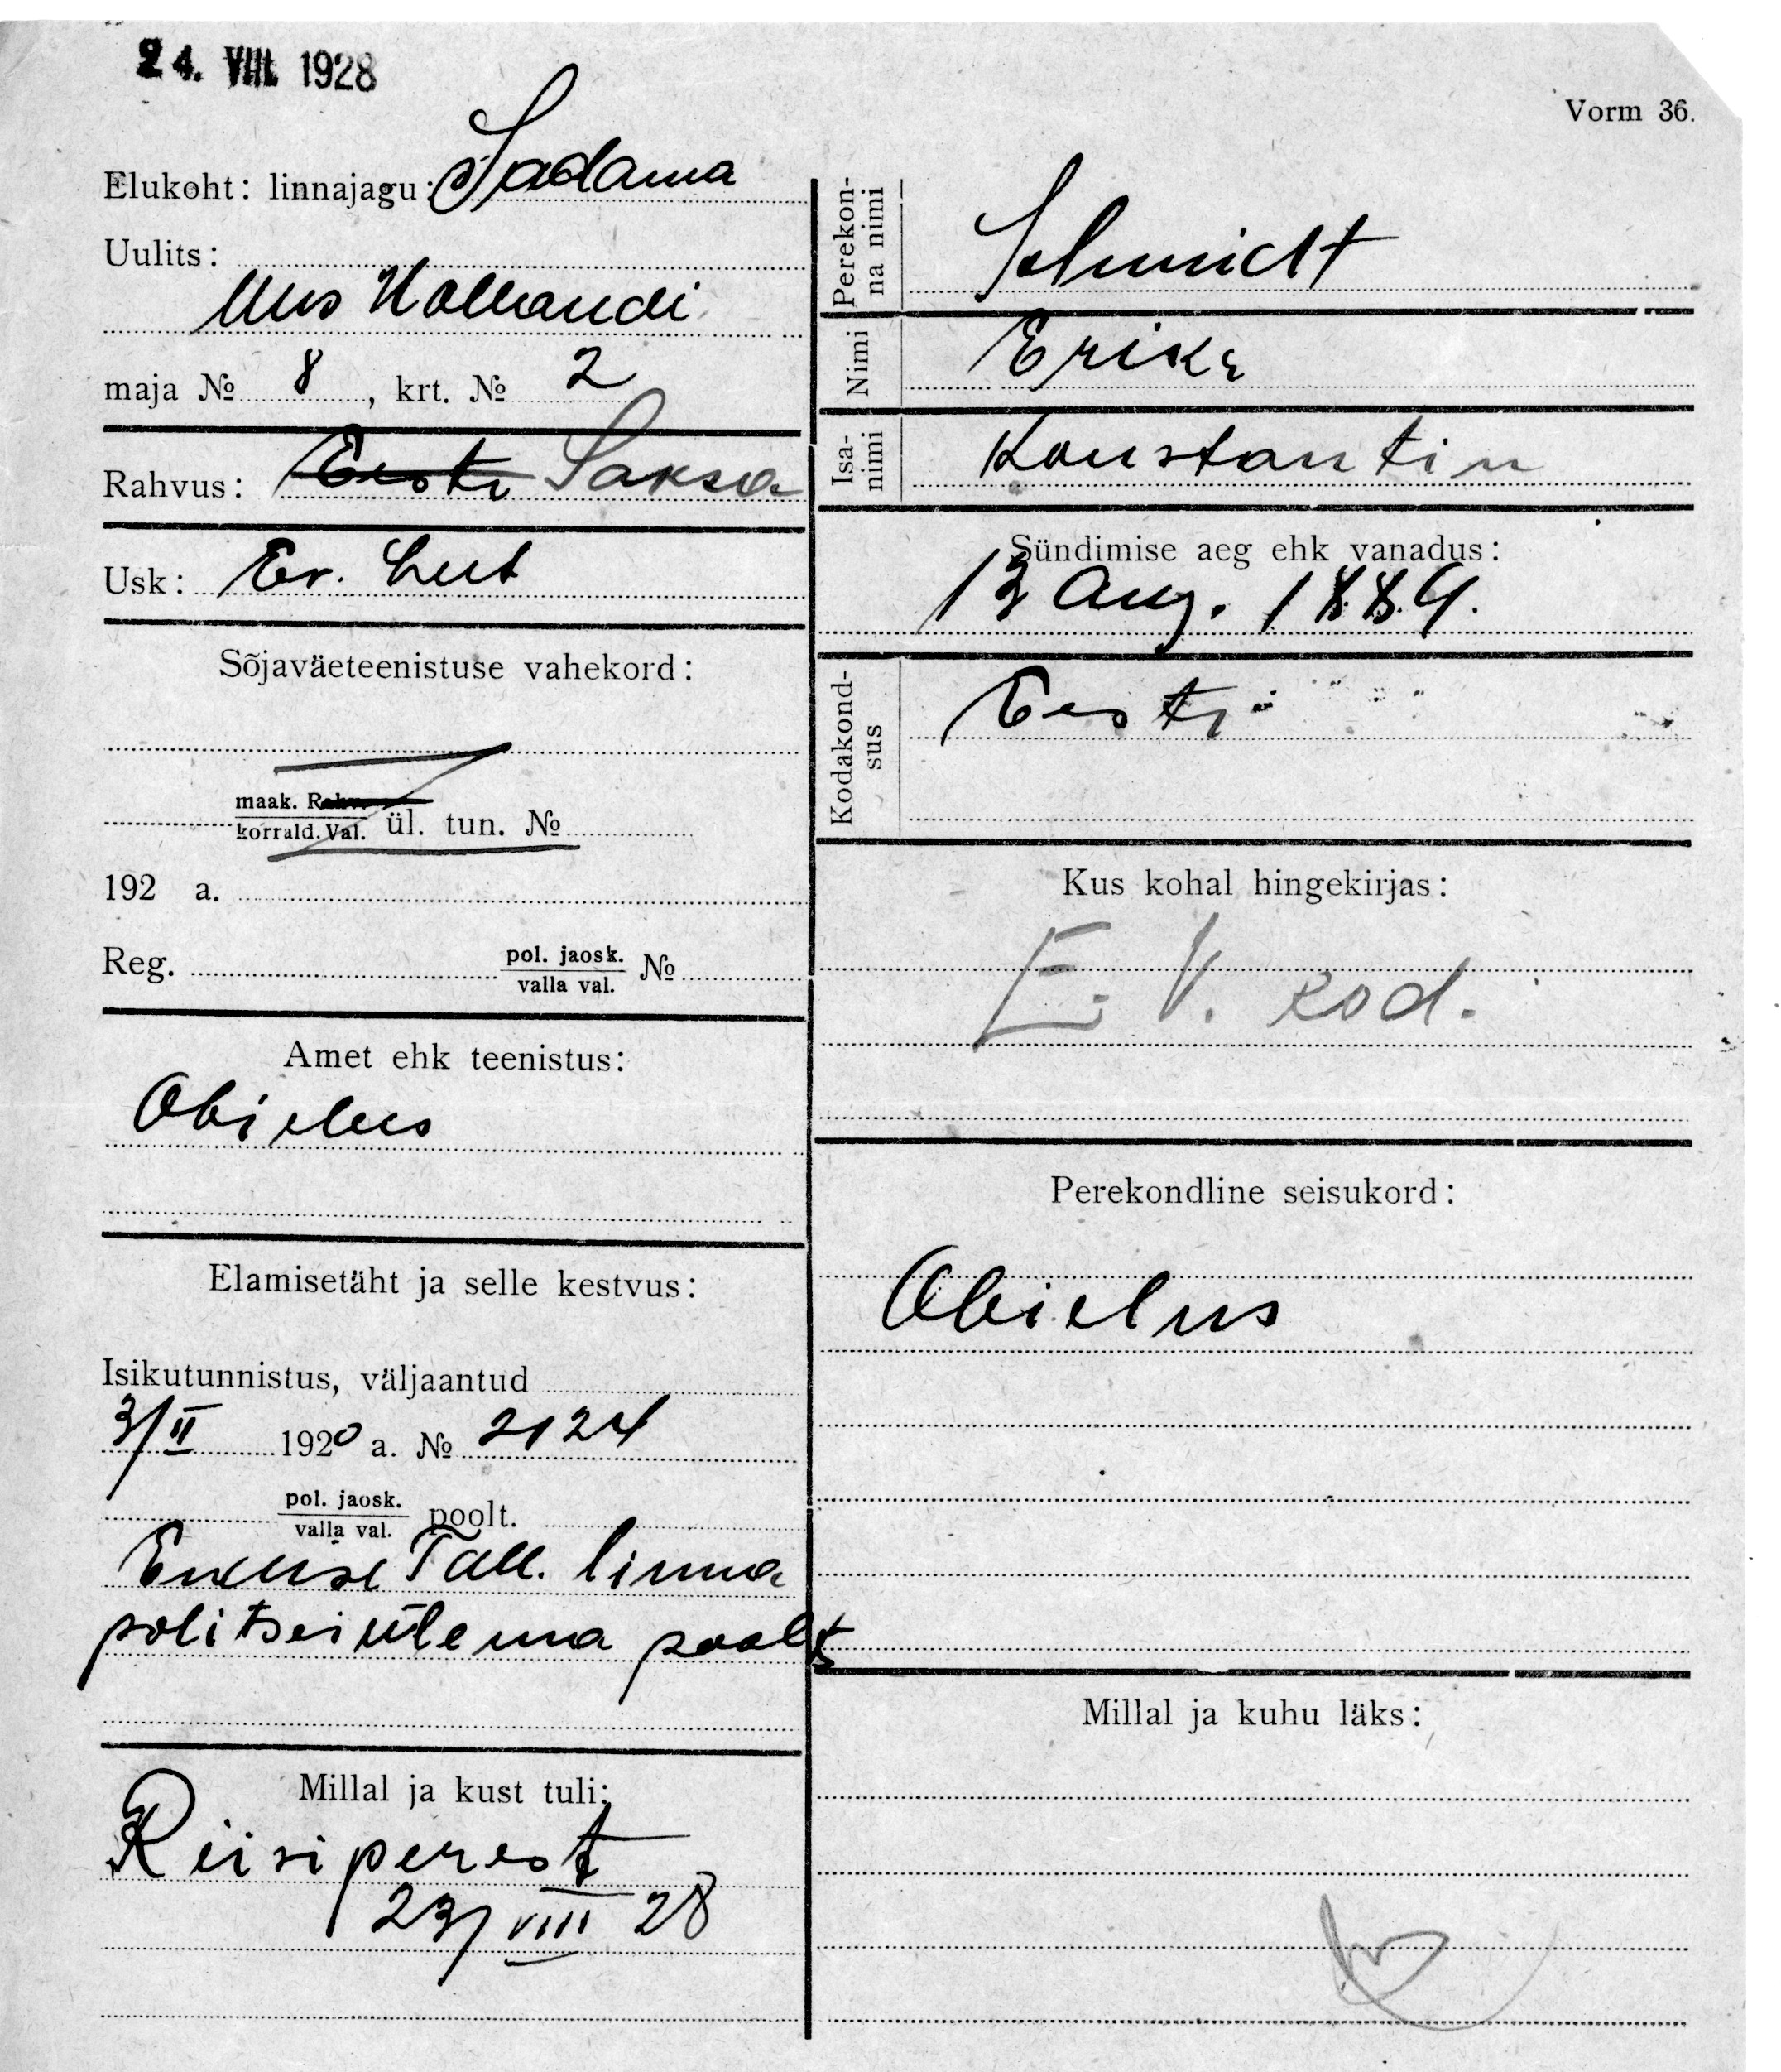 24. VIII. 1928
Vorm 36.
Elukoht: linnajagu: Sadama
Uulits:
Uus Hollandi
maja № 8, krt. № 2
Rahvus: Eesti Saksa
Usk: Ev. Lut
Sõjaväeteenistuse vahekord:
maak. Rahv.
korrald. Val. ül. tun. №
192 a.
Reg. pol. jaosk. №
valla val.
Amet ehk teenistus:
Abielus
Elamisetäht ja selle kestvus:
Isikutunnistus, väljaantud
3/II 1920 a. № 2124
pol. jaosk. poolt.
valla val.
Tall. linna
politseiülema poolt
Millal ja kust tuli:
Riisiperest
23/VIII 28
Perekonna nimi
Schmidt
Nimi
Erika
Isanimi
Konstantin
Sündimise aeg ehk vanadus:
13 Aug. 1889.
Kodakondsus
Eesti
Kus kohal hingekirjas:
E. V. kod.
Perekondline seisukord:
Abielus
Millal ja kuhu läks: